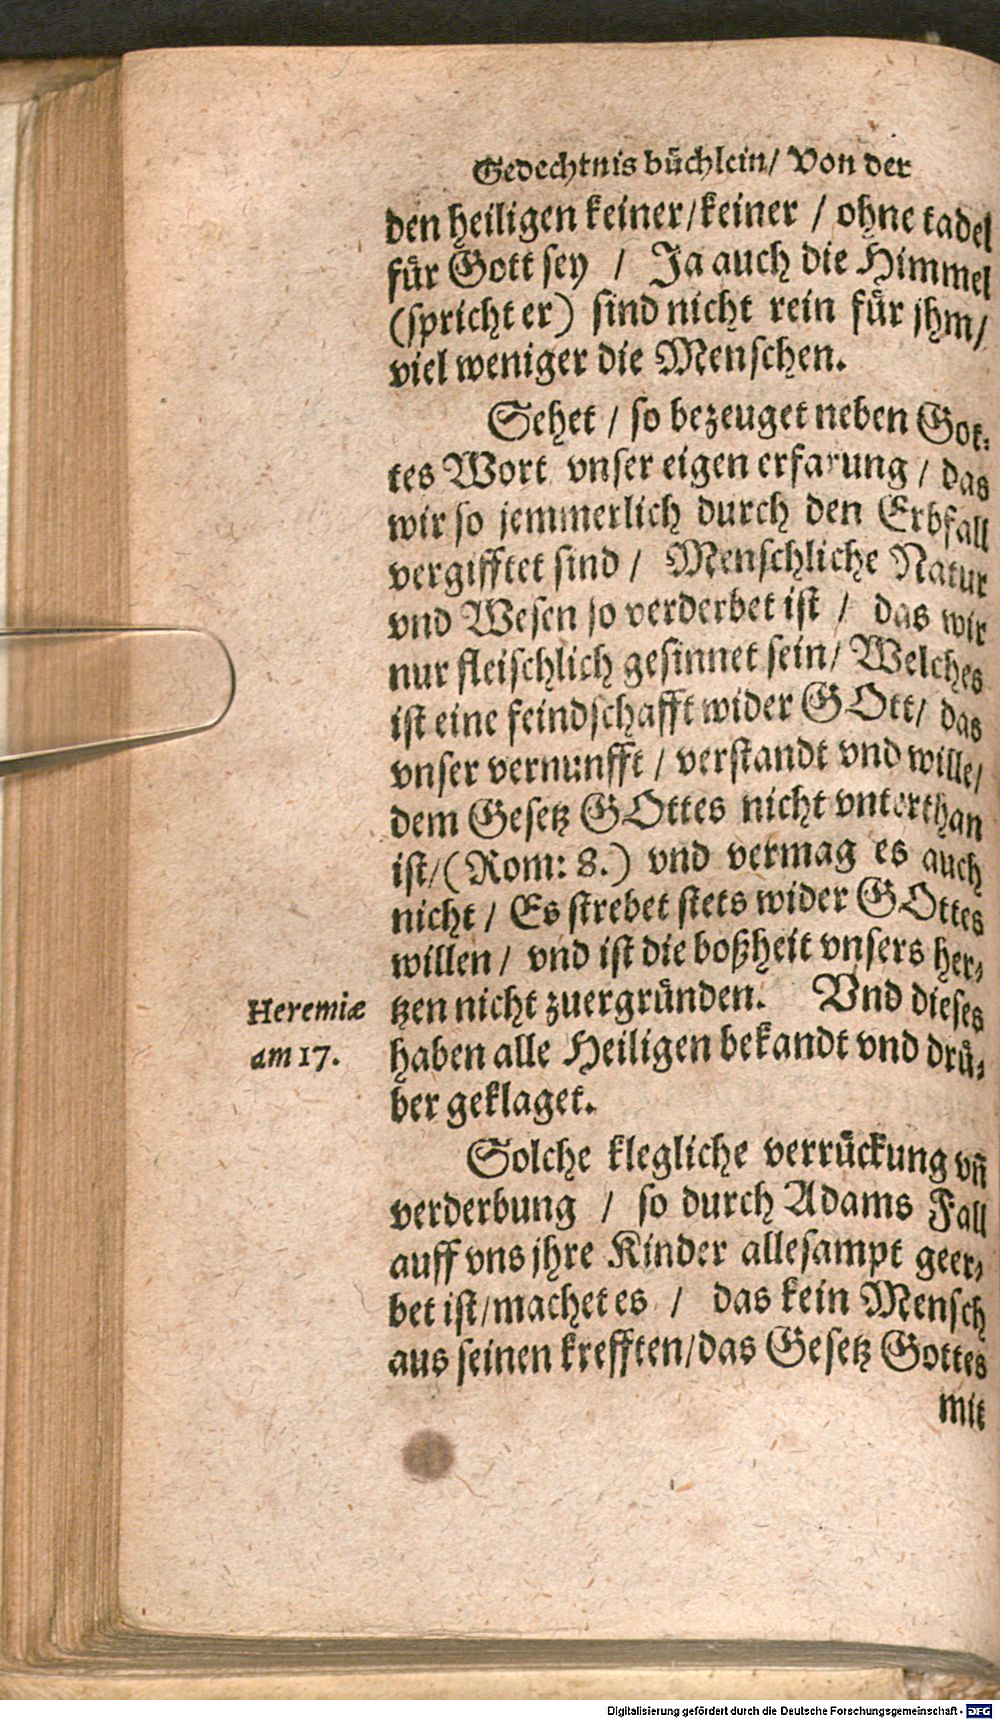 Gedechtnis büchlein/ Von der
den heiligen keiner/keiner / ohne tadel
für Gott sey / Ja auch die Himmel
(spricht er) sind nicht rein für jhm/
viel weniger die Menschen.
Sehet / so bezeuget neben Got-
tes Wort vnser eigen erfarung / das
wir so jemmerlich durch den Erbfall
vergifftet sind / Menschliche Natur
vnd Wesen so verderbet ist / das wir
nur fleischlich gesinnet sein/ Welches
ist eine feindschafft wider GOtt/ das
vnser vernunfft / verstandt vnd wille/
dem Gesetz GOttes nicht vnterthan
ist/(Rom: 8.) vnd vermag es auch
nicht / Es strebet stets wider GOttes
willen / vnd ist die boßheit vnsers her-
tzen nicht zuergründen. Vnd dieses
Heremiæ
am 17.
haben alle Heiligen bekandt vnd drü-
ber geklaget.
Solche klegliche verrückung vñ
verderbung / so durch Adams Fall
auff vns jhre Kinder allesampt geer-
bet ist/machet es / das kein Mensch
aus seinen krefften/das Gesetz Gottes
mit
Digitalisierung gefördert durch die Deutsche Forschungsgemeinschaft - DFG